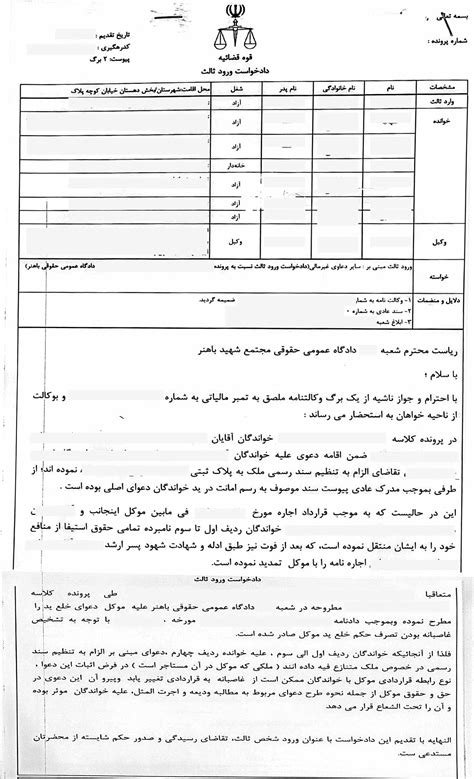 بسمه تعالی
شماره پرونده :
تاریخ تقدیم :
کدرهگیری :
پیوست: ۲ برگ
قوه قضائیه
دادخواست ورود ثالث
مشخصات نام نام خانوادگی نام پدر شغل محل اقامت:شهرستان/بخش دهستان خیابان کوچه پلاک
وارد ثالث آزاد :
خوانده آزاد :
آزاد
خانه‌دار
آزاد
آزاد
آزاد
وکیل وکیل
خواسته ورود ثالث مبنی بر : سایر دعاوی غیرمالی(دادخواست ورود ثالث نسبت به پرونده دادگاه عمومی حقوقی باهنر)
دلایل و منضمات ۱- وکالت نامه به شمار ضمیمه گردید.
۲- سند عادی به شماره
۳- ابلاغ شعبه
ریاست محترم شعبه دادگاه عمومی حقوقی مجتمع شهید باهنر
با سلام ؛
با احترام و جواز ناشیه از یک برگ وکالتنامه ملصق به تمبر مالیاتی به شماره و بوکالت
از ناحیه خواهان به استحضار می رساند :
در پرونده کلاسه خواندگان آقایان
ضمن اقامه دعوی علیه خواندگان
، تقاضای الزام به تنظیم سند رسمی ملک به پلاک ثبتی نموده اند؛ از
طرفی بموجب مدرک عادی پیوست سند موصوف به رسم امانت در ید خواندگان دعوای اصلی بوده است .
این در حالیست که به موجب قرارداد اجاره مورخ فی مابین موکل اینجانب و
خواندگان ردیف اول تا سوم نامبرده تمامی حقوق استیفا از منافع
خود را به ایشان منتقل نموده است، که بعد از فوت نیز طبق ادله و شهادت شهود پسر ارشد
اجاره نامه را با موکل تمدید نموده است.
دادخواست ورود ثالث
متعاقبا طی پرونده کلاسه
مطروحه در شعبه دادگاه عمومی حقوقی باهنر علیه موکل دعوای خلع ید را
مطرح نموده وبموجب دادنامه مورخه ، با توجه به تشخیص
غاصبانه بودن تصرف حکم خلع ید موکل صادر شده است.
فلذا از آنجائیکه خواندگان ردیف اول الی سوم ، علیه خوانده ردیف چهارم ،دعوای مبنی بر الزام به تنظیم سند
رسمی در خصوص ملک متنازع فیه داده انند ( ملکی که موکل در آن مستاجر است ) در فرض اثبات این دعوا ،
نوع رابطه قراردادی موکل با خواندگان ممکن است از غاصبانه به قراردادی تغییر یابد وپیرو آن این دعوی در
حق و حقوق موکل از جمله نحوه طرح دعوای مربوط به مطالبه ودیعه و اجرت المثل، علیه خواندگان موثر بوده
و آن را تحت الشعاع قرار می دهد
النهایه با تقدیم این دادخواست با عنوان ورود شخص ثالث، تقاضای رسیدگی و صدور حکم شایسته از محضرتان
مستدعی ست.